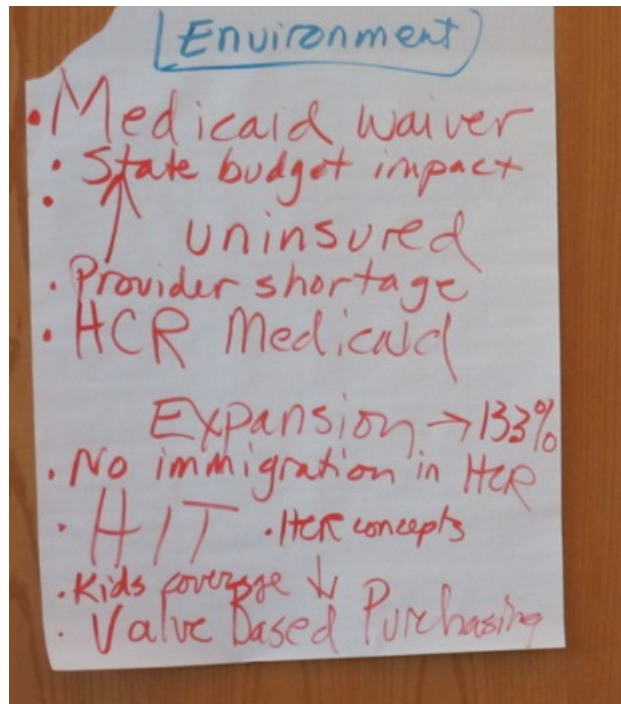 Environment
• Medicaid Waiver
• State budget impact
• ↑ uninsured
• Provider shortage
• HCR Medicaid
Expansion → 133%
• No immigration in HCR
• HIT • HCR concepts
• Kids coverage ↓
• Value Based Purchasing